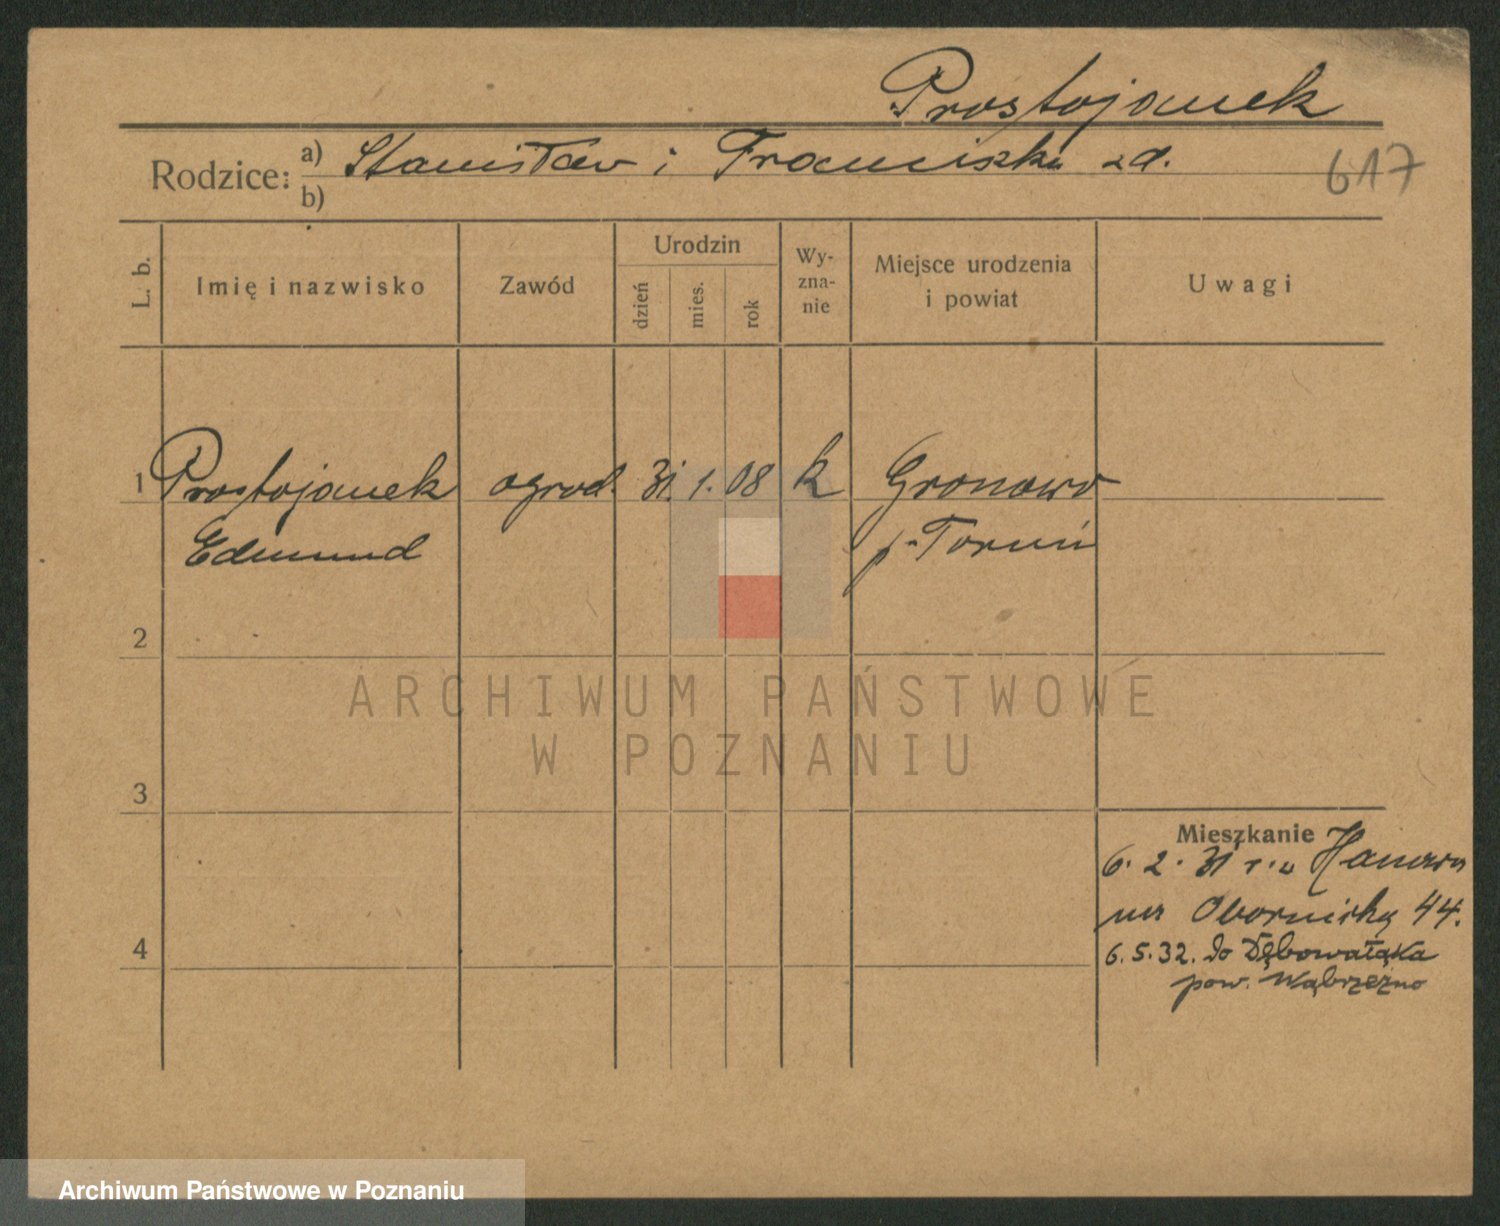 Prostojanek
Rodzice: a) Stanisław i Franciszka zd.
b)
617
L. b.
Imię i nazwisko
Zawód
Urodzin
dzień
mies.
rok
Wy-
zna-
nie
Miejsce urodzenia
i powiat
Uwagi
1 Prostojanek ogrod. 31. 1. 08 k Gronowo
Edmund p. Toruń
2
ARCHIWUM PAŃSTWOWE
W POZNANIU
3
Mieszkanie
6. 2. 31 r.
Obornicka 44.
4
6.5.32. do Dębowałąka
pow. Wąbrzeźno
Archiwum Państwowe w Poznaniu